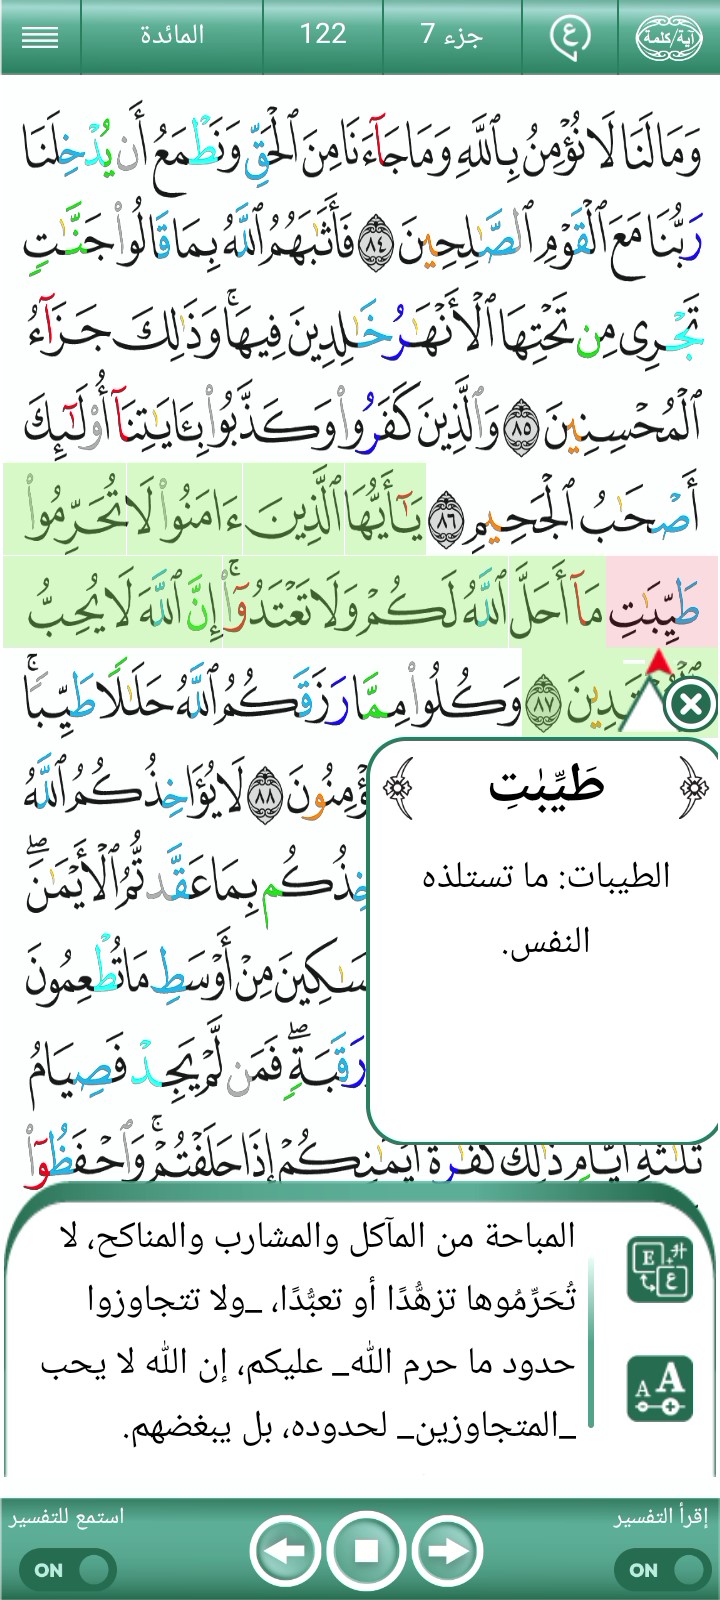 آية/كلمة
ع
جزء 7
122
المائدة
وَمَا لَنَا لَا نُؤْمِنُ بِٱللَّهِ وَمَا جَآءَنَا مِنَ ٱلْحَقِّ وَنَطْمَعُ أَن يُدْخِلَنَا
رَبُّنَا مَعَ ٱلْقَوْمِ ٱلصَّٰلِحِينَ ٨٤ فَأَثَٰبَهُمُ ٱللَّهُ بِمَا قَالُوا۟ جَنَّٰتٍ
تَجْرِى مِن تَحْتِهَا ٱلْأَنْهَٰرُ خَٰلِدِينَ فِيهَا ۚ وَذَٰلِكَ جَزَآءُ
ٱلْمُحْسِنِينَ ٨٥ وَٱلَّذِينَ كَفَرُوا۟ وَكَذَّبُوا۟ بِـَٔايَٰتِنَآ أُو۟لَٰٓئِكَ
أَصْحَٰبُ ٱلْجَحِيمِ ٨٦ يَٰٓأَيُّهَا ٱلَّذِينَ ءَامَنُوا۟ لَا تُحَرِّمُوا۟
طَيِّبَٰتِ مَآ أَحَلَّ ٱللَّهُ لَكُمْ وَلَا تَعْتَدُوٓا۟ ۚ إِنَّ ٱللَّهَ لَا يُحِبُّ
٨٧ وَكُلُوا۟ مِمَّا رَزَقَكُمُ ٱللَّهُ حَلَٰلًا طَيِّبًا ۚ
٨٨ لَا يُؤَاخِذُكُمُ ٱللَّهُ
بِمَا عَقَّدتُّمُ ٱلْأَيْمَٰنَ ۖ
مِنْ أَوْسَطِ مَا تُطْعِمُونَ
رَقَبَةٍ ۖ فَمَن لَّمْ يَجِدْ فَصِيَامُ
ثَلَٰثَةِ أَيَّامٍ ذَٰلِكَ كَفَّٰرَةُ أَيْمَٰنِكُمْ إِذَا حَلَفْتُمْ ۚ وَٱحْفَظُوٓا۟
طَيِّبَٰتِ
الطيبات: ما تستلذه
النفس.
المباحة من المآكل والمشارب والمناكح، لا
تُحَرِّمُوها تزهُّدًا أو تعبُّدًا، _ولا تتجاوزوا
حدود ما حرم الله_ عليكم، إن الله لا يحب
_المتجاوزين_ لحدوده، بل يبغضهم.
إقرأ التفسير
استمع للتفسير
ON
ON